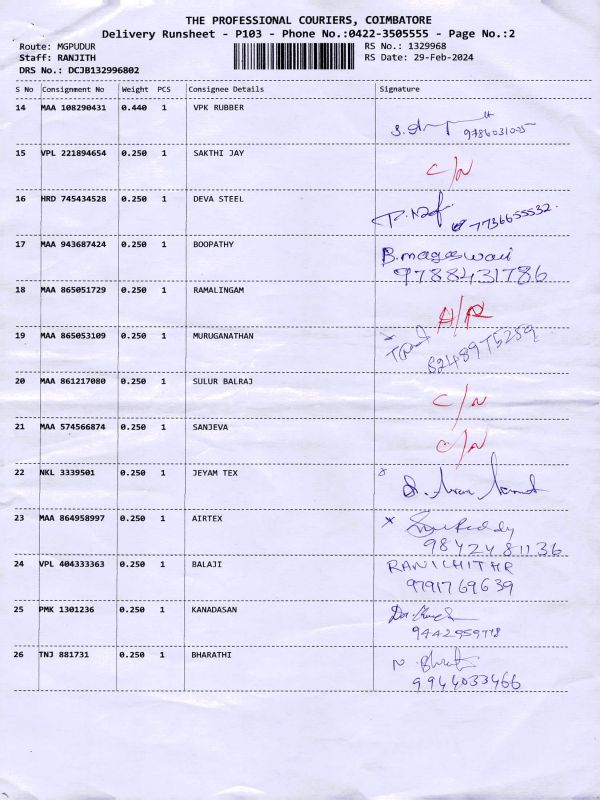 THE PROFESSIONAL COURIERS, COIMBATORE
Delivery Runsheet - P103 - Phone No.:0422-3505555 - Page No.:2
Route: MGPUDUR
RS No.: 1329968
Staff: RANJITH
RS Date: 29-Feb-2024
DRS No.: DCJB132996802
S No Consignment No Weight PCS Consignee Details Signature
14 MAA 108290431 0.440 1 VPK RUBBER
9786031005
15 VPL 221894654 0.250 1 SAKTHI JAY C/N
16 HRD 745434528 0.250 1 DEVA STEEL
7736655532
17 MAA 943687424 0.250 1 BOOPATHY B.mageswari
9788431786
18 MAA 865051729 0.250 1 RAMALINGAM
19 MAA 865053109 0.250 1 MURUGANATHAN
20 MAA 861217080 0.250 1 SULUR BALRAJ C/N
21 MAA 574566874 0.250 1 SANJEVA C/N
22 NKL 3339501 0.250 1 JEYAM TEX
23 MAA 864958997 0.250 1 AIRTEX
9842481136
24 VPL 404333363 0.250 1 BALAJI
9791769639
25 PMK 1301236 0.250 1 KANADASAN
9442959778
26 TNJ 881731 0.250 1 BHARATHI
9944033466